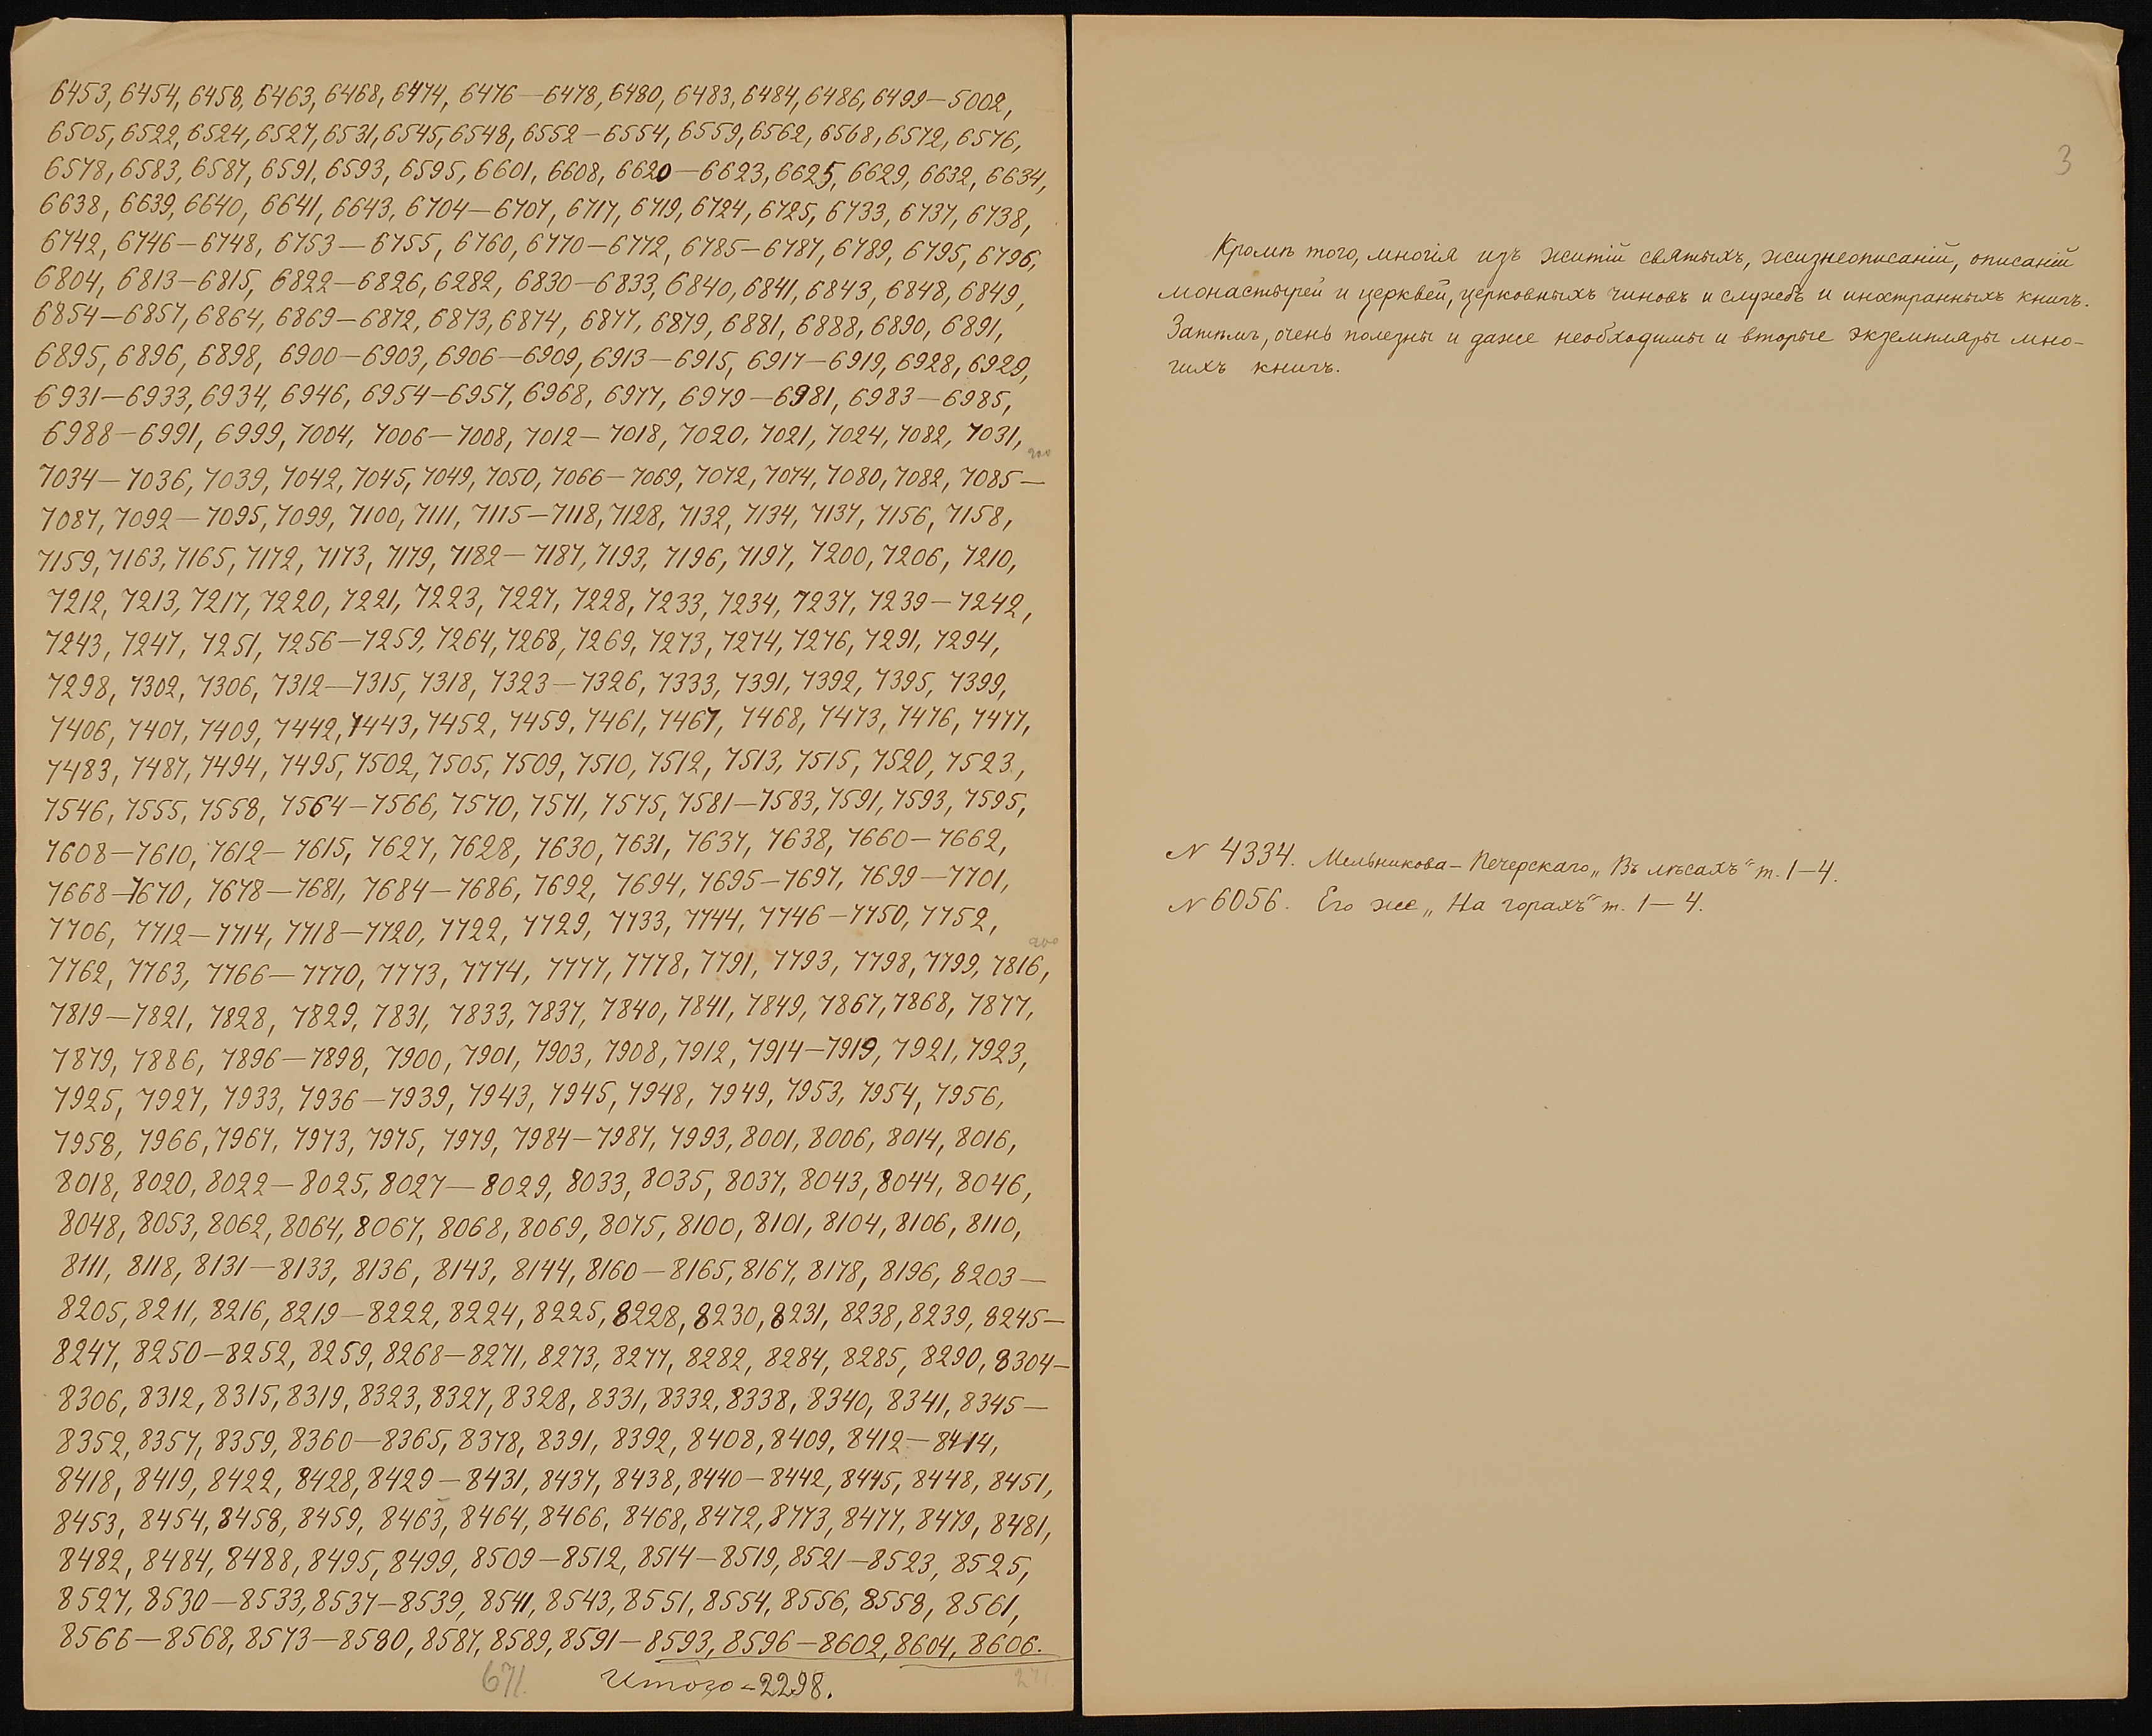 6453, 6454, 6458, 6463, 6468, 6474, 6476—6478, 6480, 6483, 6484, 6486, 6499—5002,
6505, 6522, 6524, 6527, 6531, 6545, 6548, 6552—6554, 6559, 6562, 6568, 6572, 6576,
6578, 6583, 6587, 6591, 6593, 6595, 6601, 6608, 6620—6623, 6625, 6629, 6632, 6634,
6638, 6639, 6640, 6641, 6643, 6704—6707, 6717, 6719, 6724, 6725, 6733, 6737, 6738,
6742, 6746—6748, 6753—6755, 6760, 6770—6772, 6785—6787, 6789, 6795, 6796,
6804, 6813—6815, 6822—6826, 6282, 6830—6833, 6840, 6841, 6843, 6848, 6849,
6854—6857, 6864, 6869—6872, 6873, 6874, 6877, 6879, 6881, 6888, 6890, 6891,
6895, 6896, 6898, 6900—6903, 6906—6909, 6913—6915, 6917—6919, 6928, 6929,
6931—6933, 6934, 6946, 6954—6957, 6968, 6977, 6979—6981, 6983—6985,
6988—6991, 6999, 7004, 7006—7008, 7012—7018, 7020, 7021, 7024, 7082, 7031,
7034—7036, 7039, 7042, 7045, 7049, 7050, 7066—7069, 7072, 7074, 7080, 7082, 7085—
7087, 7092—7095, 7099, 7100, 7111, 7115—7118, 7128, 7132, 7134, 7137, 7156, 7158,
7159, 7163, 7165, 7172, 7173, 7179, 7182—7187, 7193, 7196, 7197, 7200, 7206, 7210,
7212, 7213, 7217, 7220, 7221, 7223, 7227, 7228, 7233, 7234, 7237, 7239—7242,
7243, 7247, 7251, 7256—7259, 7264, 7268, 7269, 7273, 7274, 7276, 7291, 7294,
7298, 7302, 7306, 7312—7315, 7318, 7323—7326, 7333, 7391, 7392, 7395, 7399,
7406, 7407, 7409, 7442, 7443, 7452, 7459, 7461, 7467, 7468, 7473, 7476, 7477,
7483, 7487, 7494, 7495, 7502, 7505, 7509, 7510, 7512, 7513, 7515, 7520, 7523,
7546, 7555, 7558, 7564—7566, 7570, 7571, 7575, 7581—7583, 7591, 7593, 7595,
7608—7610, 7612—7615, 7627, 7628, 7630, 7631, 7637, 7638, 7660—7662,
7668—7670, 7678—7681, 7684—7686, 7692, 7694, 7695—7697, 7699—7701,
7706, 7712—7714, 7718—7720, 7722, 7729, 7733, 7744, 7746—7750, 7752,
7762, 7763, 7766—7770, 7773, 7774, 7777, 7778, 7791, 7793, 7798, 7799, 7816,
7819—7821, 7828, 7829, 7831, 7833, 7837, 7840, 7841, 7849, 7867, 7868, 7877,
7879, 7886, 7896—7898, 7900, 7901, 7903, 7908, 7912, 7914—7919, 7921, 7923,
7925, 7927, 7933, 7936—7939, 7943, 7945, 7948, 7949, 7953, 7954, 7956,
7958, 7966, 7967, 7973, 7975, 7979, 7984—7987, 7993, 8001, 8006, 8014, 8016,
8018, 8020, 8022—8025, 8027—8029, 8033, 8035, 8037, 8043, 8044, 8046,
8048, 8053, 8062, 8064, 8067, 8068, 8069, 8075, 8100, 8101, 8104, 8106, 8110,
8111, 8118, 8131—8133, 8136, 8143, 8144, 8160—8165, 8167, 8178, 8196, 8203—
8205, 8211, 8216, 8219—8222, 8224, 8225, 8228, 8230, 8231, 8238, 8239, 8245—
8247, 8250—8252, 8259, 8268—8271, 8273, 8277, 8282, 8284, 8285, 8290, 8304—
8306, 8312, 8315, 8319, 8323, 8327, 8328, 8331, 8332, 8338, 8340, 8341, 8345—
8352, 8357, 8359, 8360—8365, 8378, 8391, 8392, 8408, 8409, 8412—8414,
8418, 8419, 8422, 8428, 8429—8431, 8437, 8438, 8440—8442, 8445, 8448, 8451,
8453, 8454, 8458, 8459, 8463, 8464, 8466, 8468, 8472, 8773, 8477, 8479, 8481,
8482, 8484, 8488, 8495, 8499, 8509—8512, 8514—8519, 8521—8523, 8525,
8527, 8530—8533, 8537—8539, 8541, 8543, 8551, 8554, 8556, 8558, 8561,
8566—8568, 8573—8580, 8587, 8589, 8591—8593, 8596—8602, 8604, 8606.
671. Итого - 2298. 271
3
Кромѣ того, многія изъ житій святыхъ, жизнеописаній, описаній
монастырей и церквей, церковныхъ чиновъ и службъ и инхтранныхъ книгъ.
Затѣмъ, очень полезны и даже необходимы и вторые экземпляры мно-
гихъ книгъ.
N 4334. Мельникова-Печерскаго „Въ лѣсахъ" т. 1—4.
N 6056. Его же „На горахъ" т. 1—4.